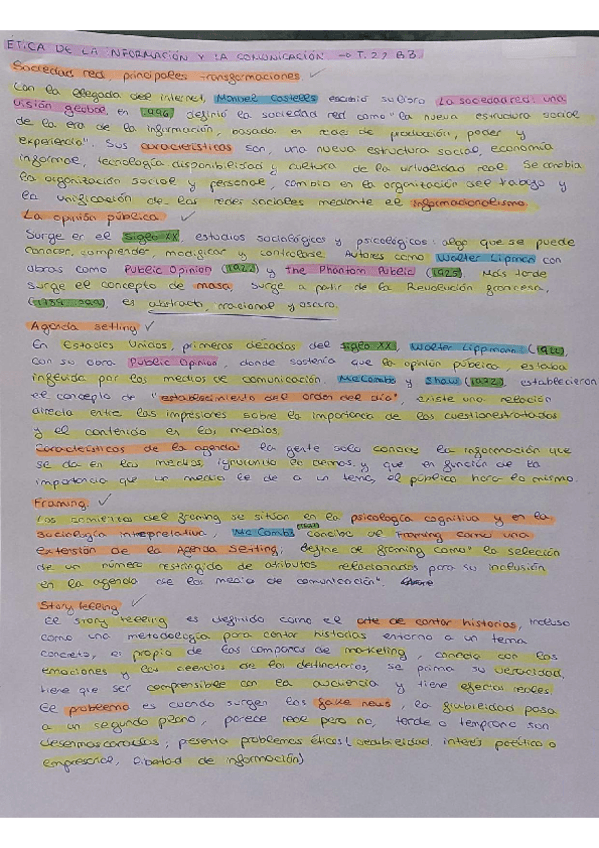 ETICA DE LA INFORMACIÓN Y LA COMUNICACIÓN → T. 2 y B3
Sociedad red, principales transformaciones ✓
Con la llegada del internet, Manuel Castells escribió su libro La sociedad red: una
visión global, en 1996, definió la sociedad red como "la nueva estructura social
de la era de la información, basada en redes de producción, poder y
experiencia". Sus características son, una nueva estructura social, economía
informal, tecnología disponibilidad y cultura de la virtualidad real. Se cambia
la organización social y personal, cambio en la organización del trabajo y
la unificación de las redes sociales mediante el informacionalismo.
La opinión pública. ✓
Surge en el siglo XX, estudios sociológicos y psicológicos: algo que se puede
conocer, comprender, modificar y controlarse. Autores como Walter Lipmann con
obras como Public Opinion (1922) y the Phantom Public (1925). Más tarde
surge el concepto de masa. Surge a partir de la Revolución francesa,
(1789-1799), es abstracto, irracional y oscuro.
Agenda setting ✓
En Estados Unidos, primeras décadas del siglo XX, Walter Lippmann
con su obra Public Opinion, donde sostenía que la opinión pública, estaba
influida por los medios de comunicación. McCombs y Shaw (1972), establecieron
el concepto de "establecimiento del orden del día", existe una relación
directa entre las impresiones sobre la importancia de las cuestiones tratadas
y el contenido en los medios.
Características de la agenda: la gente solo conoce la información que
se da en los medios, ignorando lo demás, y que en función de la
importancia que un medio le de a un tema, el público hará lo mismo.
Framing. ✓
Los comienzos del framing se sitúan en la psicología cognitiva y en la
sociología interpretativa, Mc Combs concibe el framing como una
extensión de la Agenda Setting, define de framing como "la selección
de un número restringido de atributos relacionados para su inclusión
en la agenda de los medio de comunicación".
Story telling ✓
El story telling es definido como el arte de contar historias, incluso
como una metodología para contar historias entorno a un tema
concreto, es propio de las campañas de marketing, conecta con las
emociones y las creencias de los destinatarios, se prima su veracidad,
tiene que ser comprensible con la audiencia y tiene efectos reales.
El problema es cuando surgen las fake news, la fiabilidad pasa
a un segundo plano, parece real pero no, tarde o temprano son
desenmascarados, presenta problemas éticos (credibilidad, interés político o
empresarial, libertad de información)